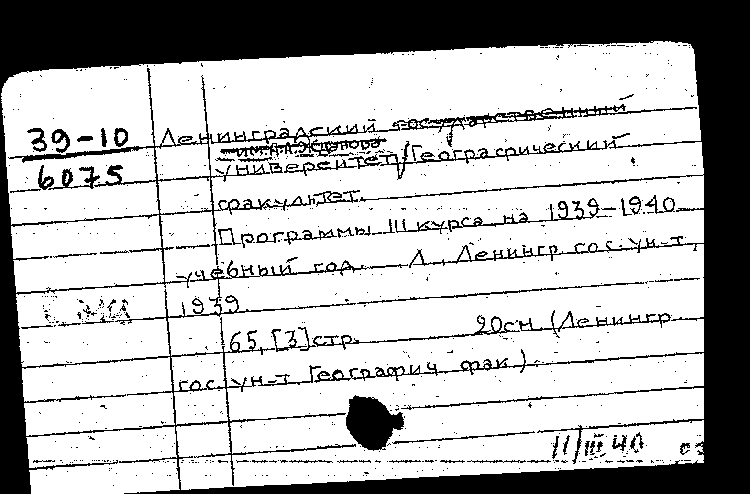 39-10
6075
Ленинградский государственный
университет/Географический
факультет.
Программы III курса на 1939-1940
учебный год. Л., Ленингр. гос. ун-т,
1939.
65, [3] стр. 20см (Ленингр.
гос. ун-т Географич. фак.).
11/III 40